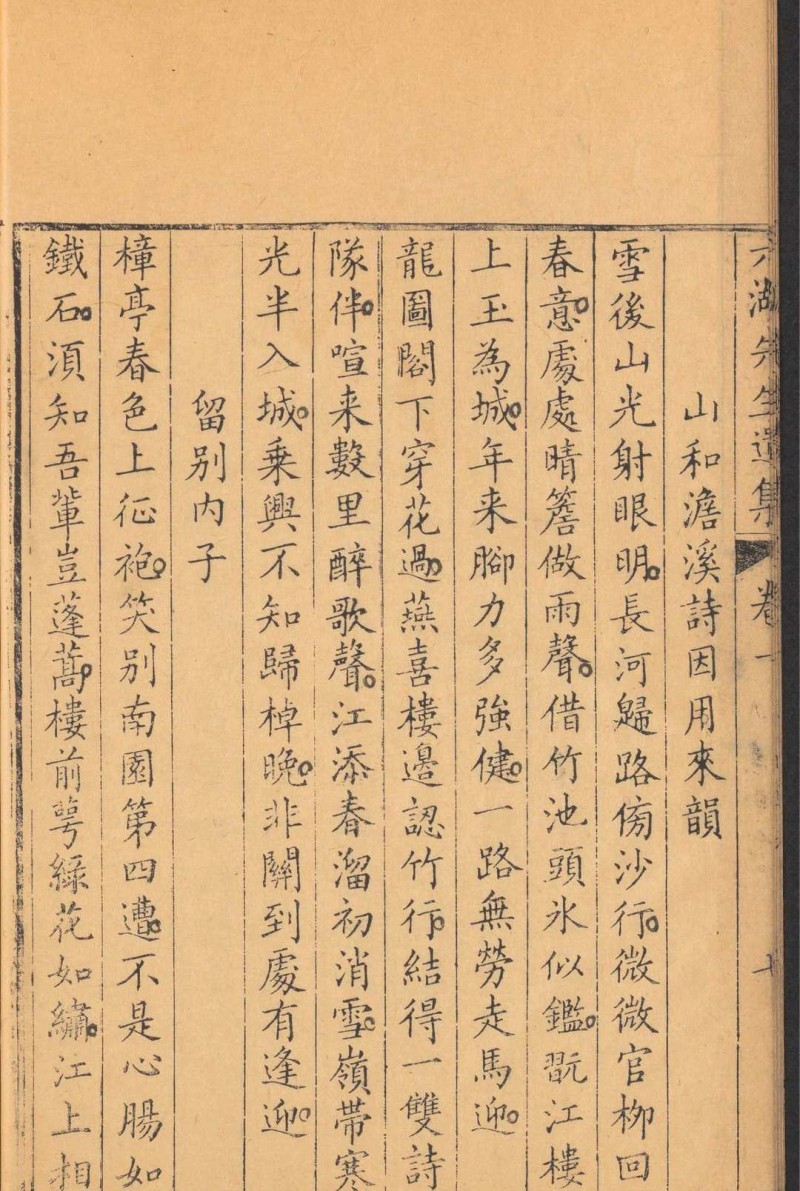 六湖先生遺集 卷一 七
山和澹溪詩因用來韻
雪後山光射眼明長河歸路傍沙行微微官柳回
春意處處晴簷做雨聲借竹池頭氷似鑑翫江樓
上玉為城年来腳力多強健一路無勞走馬迎
龍圖閣下穿花過燕喜樓邊認竹行結得一雙詩
隊伴喧来數里醉歌聲江添春溜初消雪嶺帶寒
光半入城乗興不知歸棹晚非關到處有逢迎
留別内子
樟亭春色上征袍笑別南園第四遭不是心腸如
鐵石湏知吾輩豈蓬蒿樓前萼緑花如繡江上相